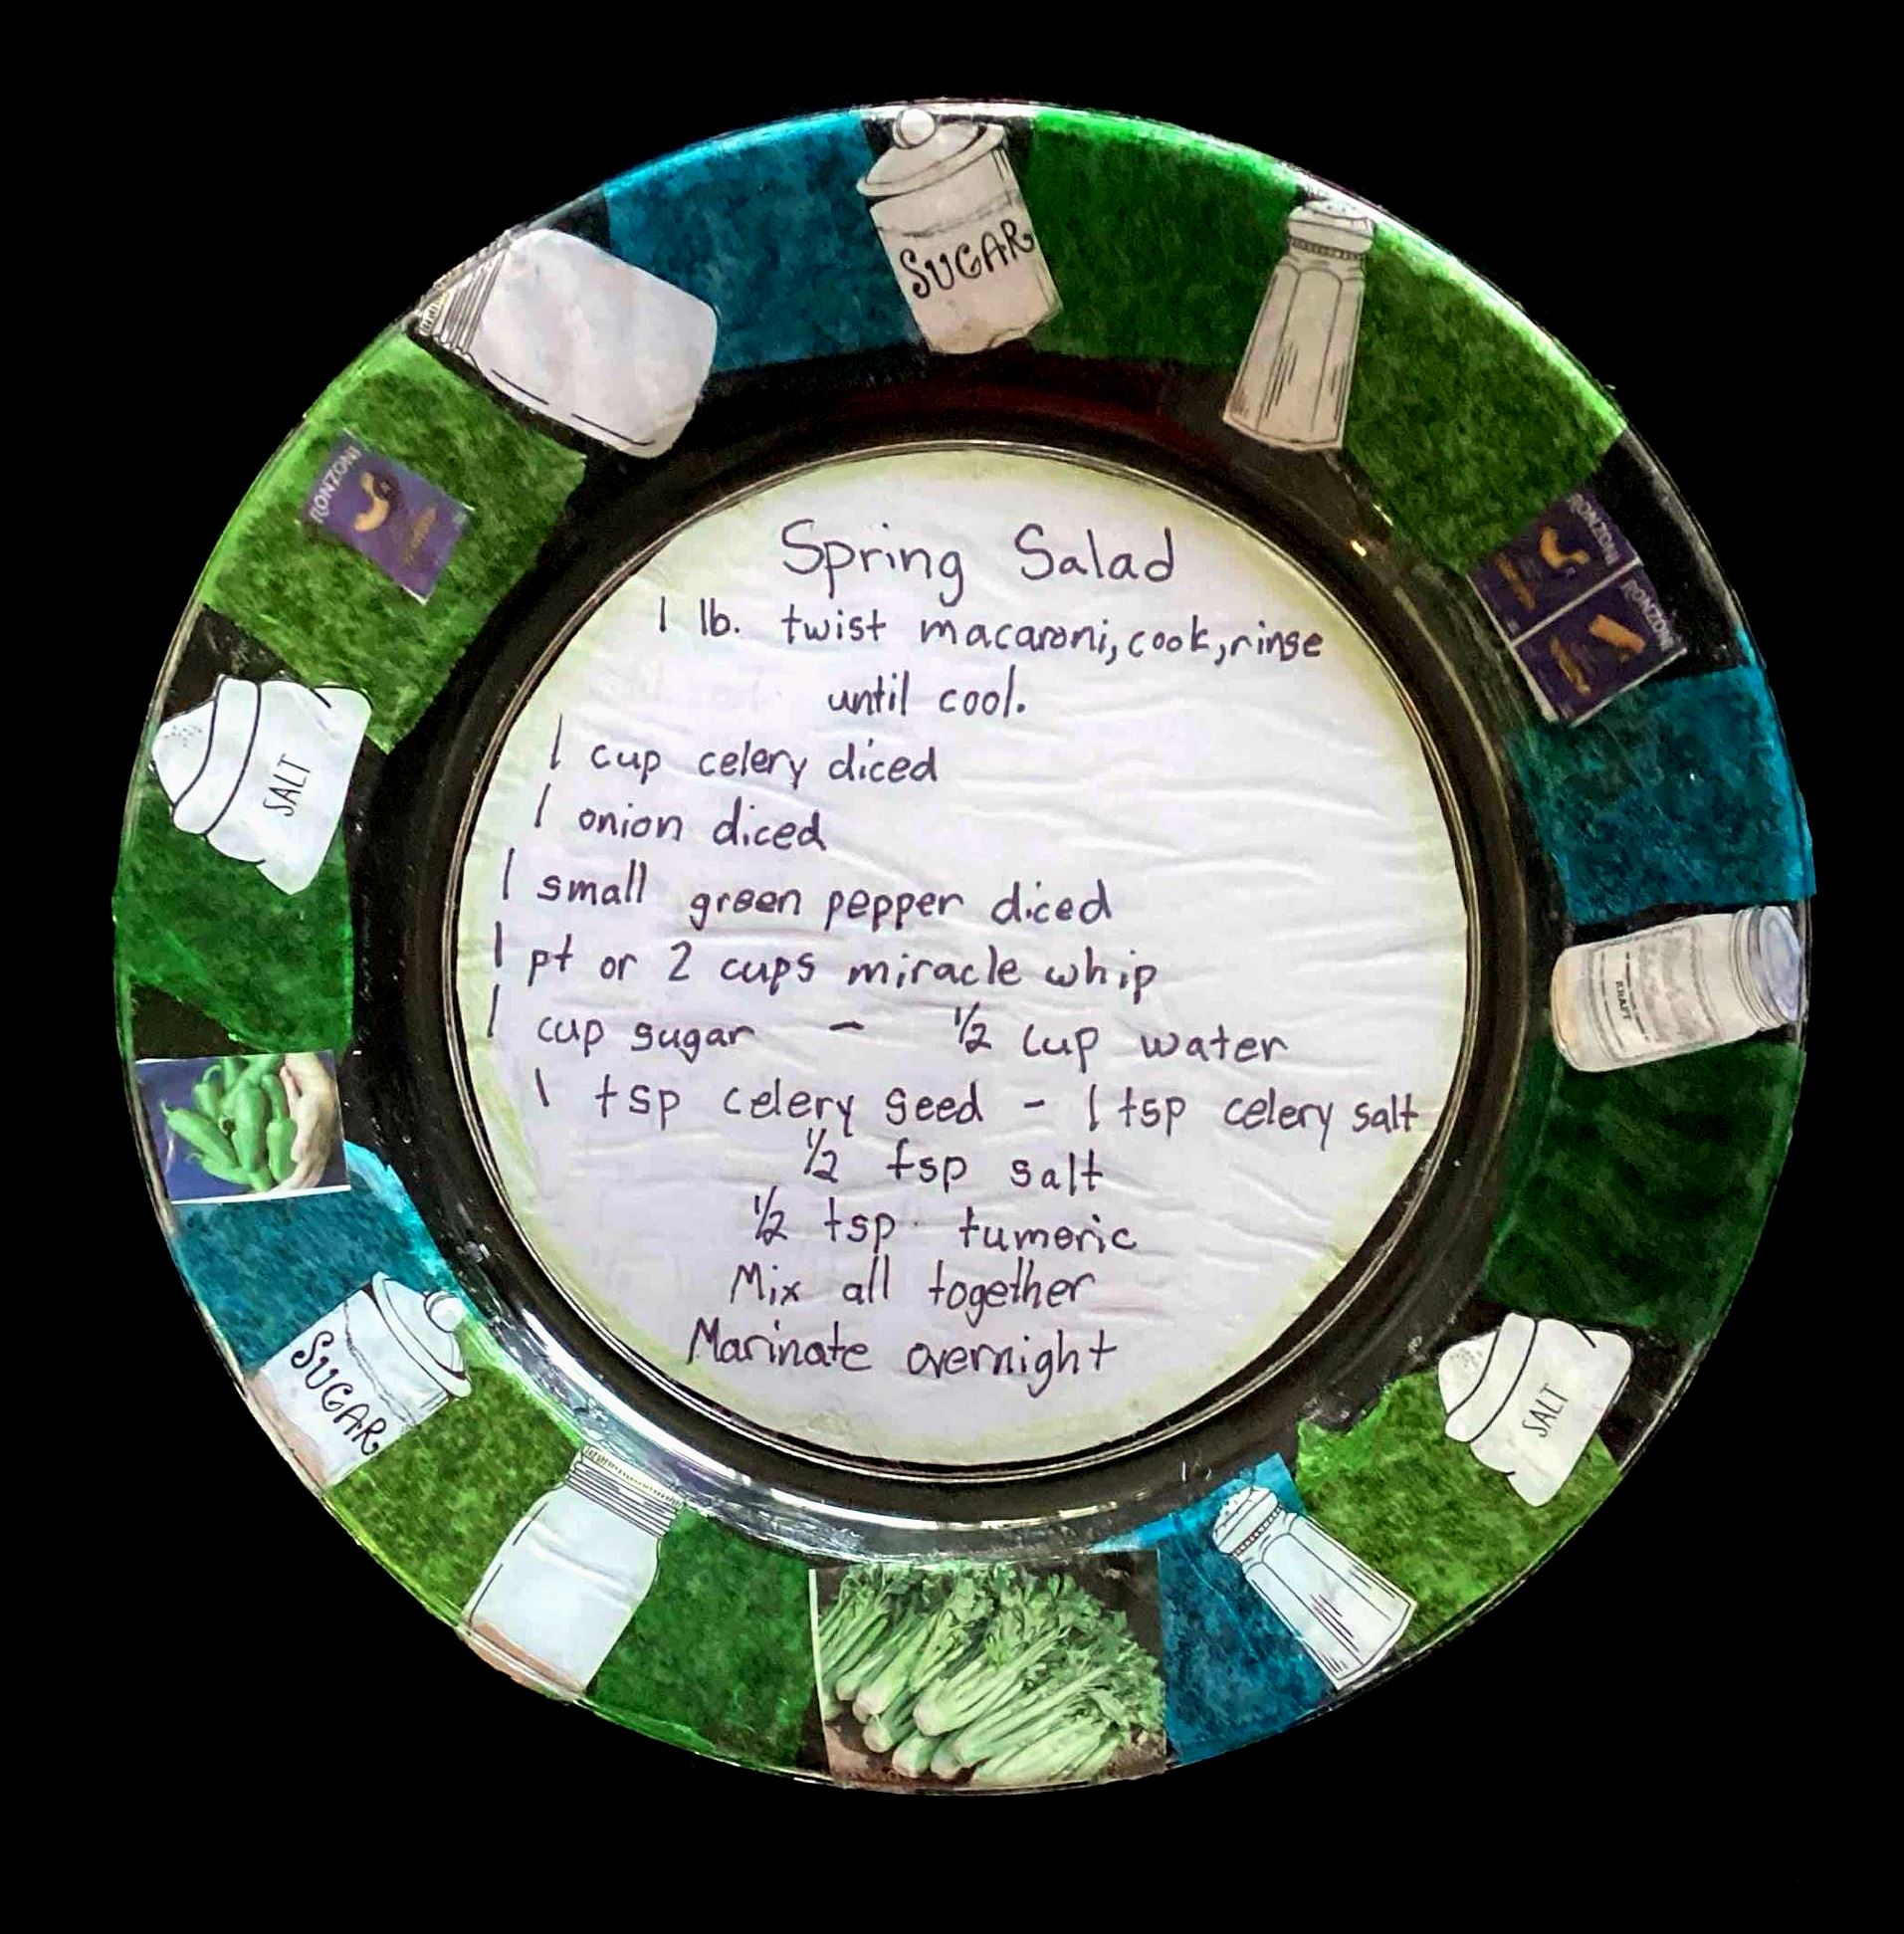 SUGAR
RONZONI
RONZONI
RONZONI
Spring Salad
1 lb. twist macaroni, cook, rinse
until cool.
1 cup celery diced
1 onion diced
1 small green pepper diced
1 pt or 2 cups miracle whip
1 cup sugar - 1/2 cup water
1 tsp celery seed - 1 tsp celery salt
1/2 tsp salt
1/2 tsp. tumeric
Mix all together
Marinate overnight
SALT
KRAFT
SUGAR
SALT